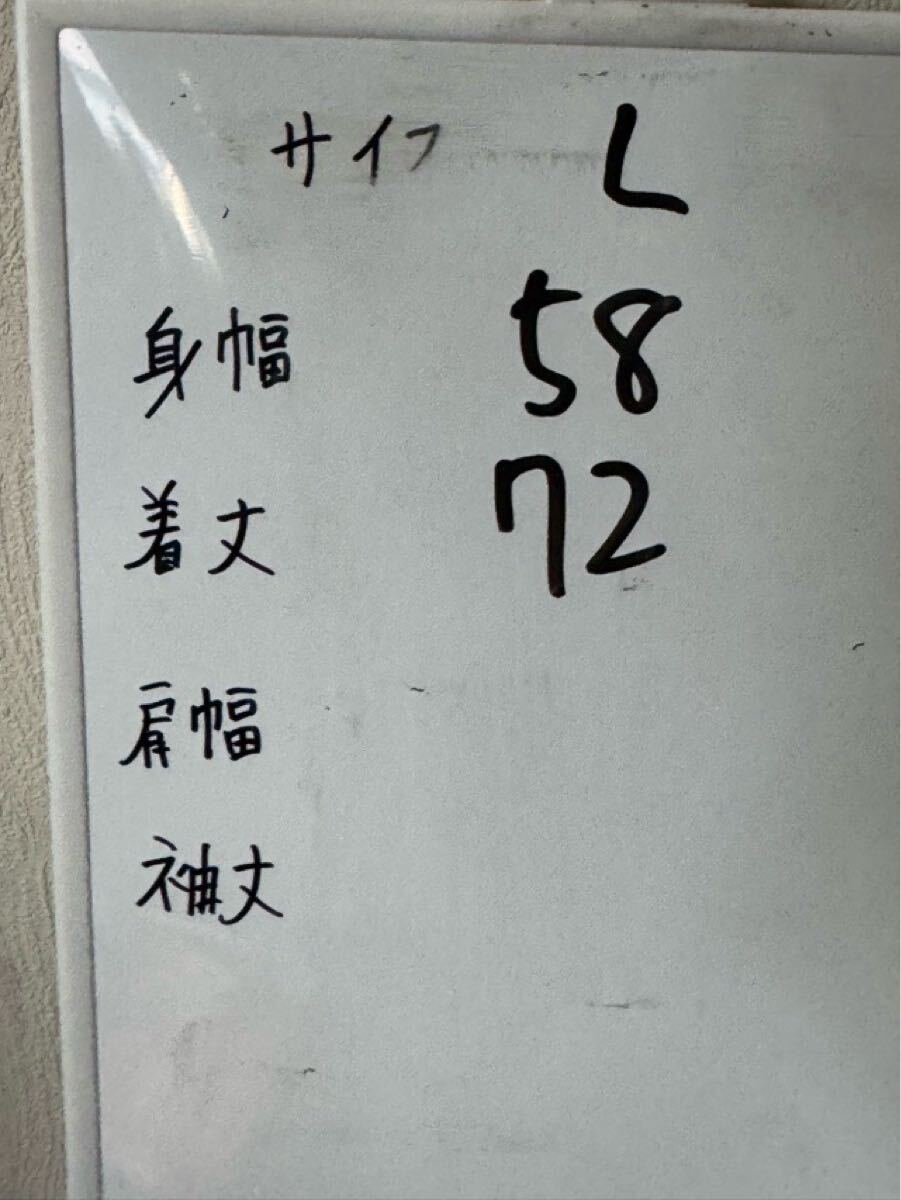 サイフ L
身幅 58
着丈 72
肩幅
袖丈